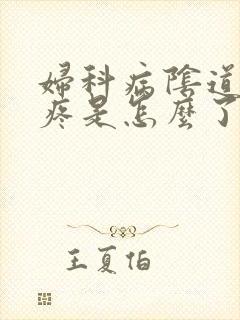 婦科病陰道
疼是怎麼了
王夏伯